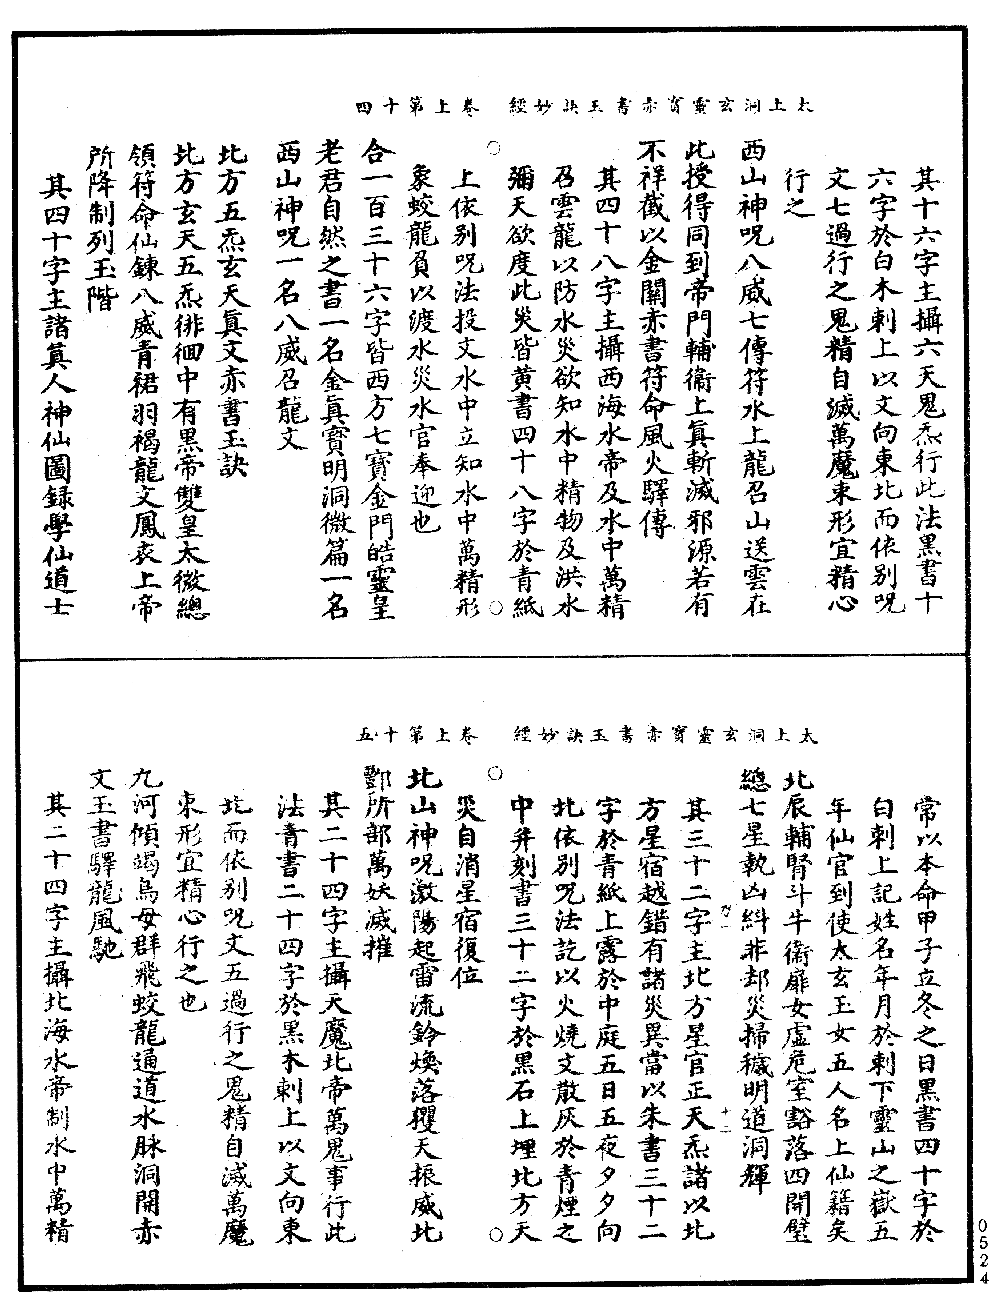 太上洞玄靈寶赤書玉訣妙經　卷上第十四
其十六字主攝六天鬼炁行此法黑書十
六字於白木刺上以文向東北而依別呪
文七過行之鬼精自滅萬魔束形宜精心
行之
西山神呪八威七傳符水上龍召山送雲在
此授得同到帝門輔衞上真斬滅邪源若有
不祥截以金關赤書符命風火驛傳
其四十八字主攝西海水帝及水中萬精
召雲龍以防水災欲知水中精物及洪水
彌天欲度此災皆黃書四十八字於青紙
上依別呪法投文水中立知水中萬精形
象蛟龍負以渡水災水官奉迎也
合一百三十六字皆西方七寶金門皓靈皇
老君自然之書一名金真寶明洞微篇一名
西山神呪一名八威召龍文
北方五炁玄天真文赤書玉訣
北方玄天五炁徘徊中有黑帝雙皇太微總
領符命仙鍊八威青裙羽褐龍文鳳衣上帝
所降制列玉階
其四十字主諸真人神仙圖錄學仙道士
太上洞玄靈寶赤書玉訣妙經　卷上第十五
常以本命甲子立冬之日黑書四十字於
白刺上記姓名年月於刺下靈山之嶽五
年仙官到使太玄玉女五人名上仙籍矣
北辰輔腎斗牛衞扉女虛危室豁落四開壁
總七星執凶糾非却災掃穢明道洞輝
其三十二字主北方星官正天炁諸以北
方星宿越錯有諸災異當以朱書三十二
字於青紙上露於中庭五日五夜夕夕向
北依別呪法訖以火燒文散灰於青煙之
中并刻書三十二字於黑石上埋北方天
災自消星宿復位
北山神呪激陽起雷流鈴煥落玃天振威北
酆所部萬妖滅摧
其二十四字主攝天魔北帝萬鬼事行此
法青書二十四字於黑木刺上以文向東
北而依別呪文五過行之鬼精自滅萬魔
束形宜精心行之也
九河傾竭鳥母群飛蛟龍通道水脉洞開赤
文玉書驛龍風馳
其二十四字主攝北海水帝制水中萬精
0524